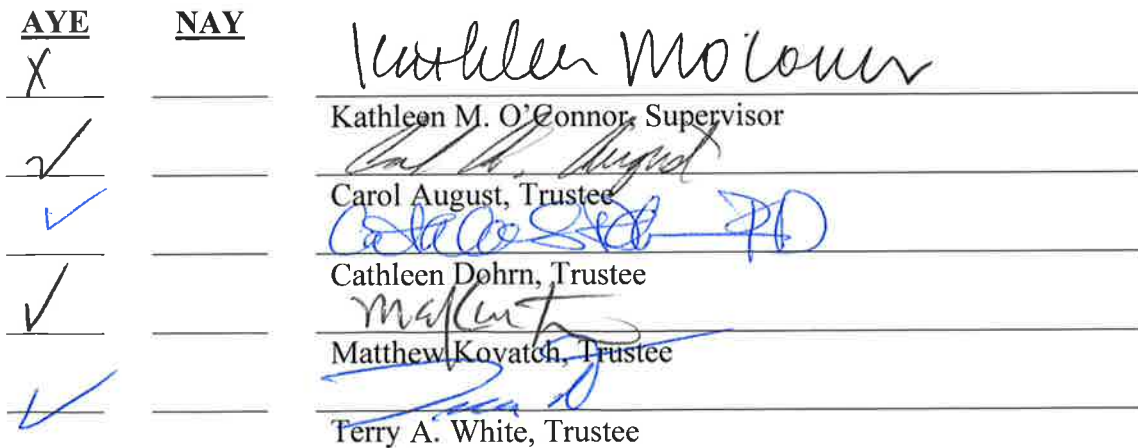 AYE NAY
X Kathleen M O'Connor
Kathleen M. O'Connor, Supervisor
✓ Carol A. August
Carol August, Trustee
✓
Cathleen Dohrn, Trustee
✓
Matthew Kovatch, Trustee
✓
Terry A. White, Trustee